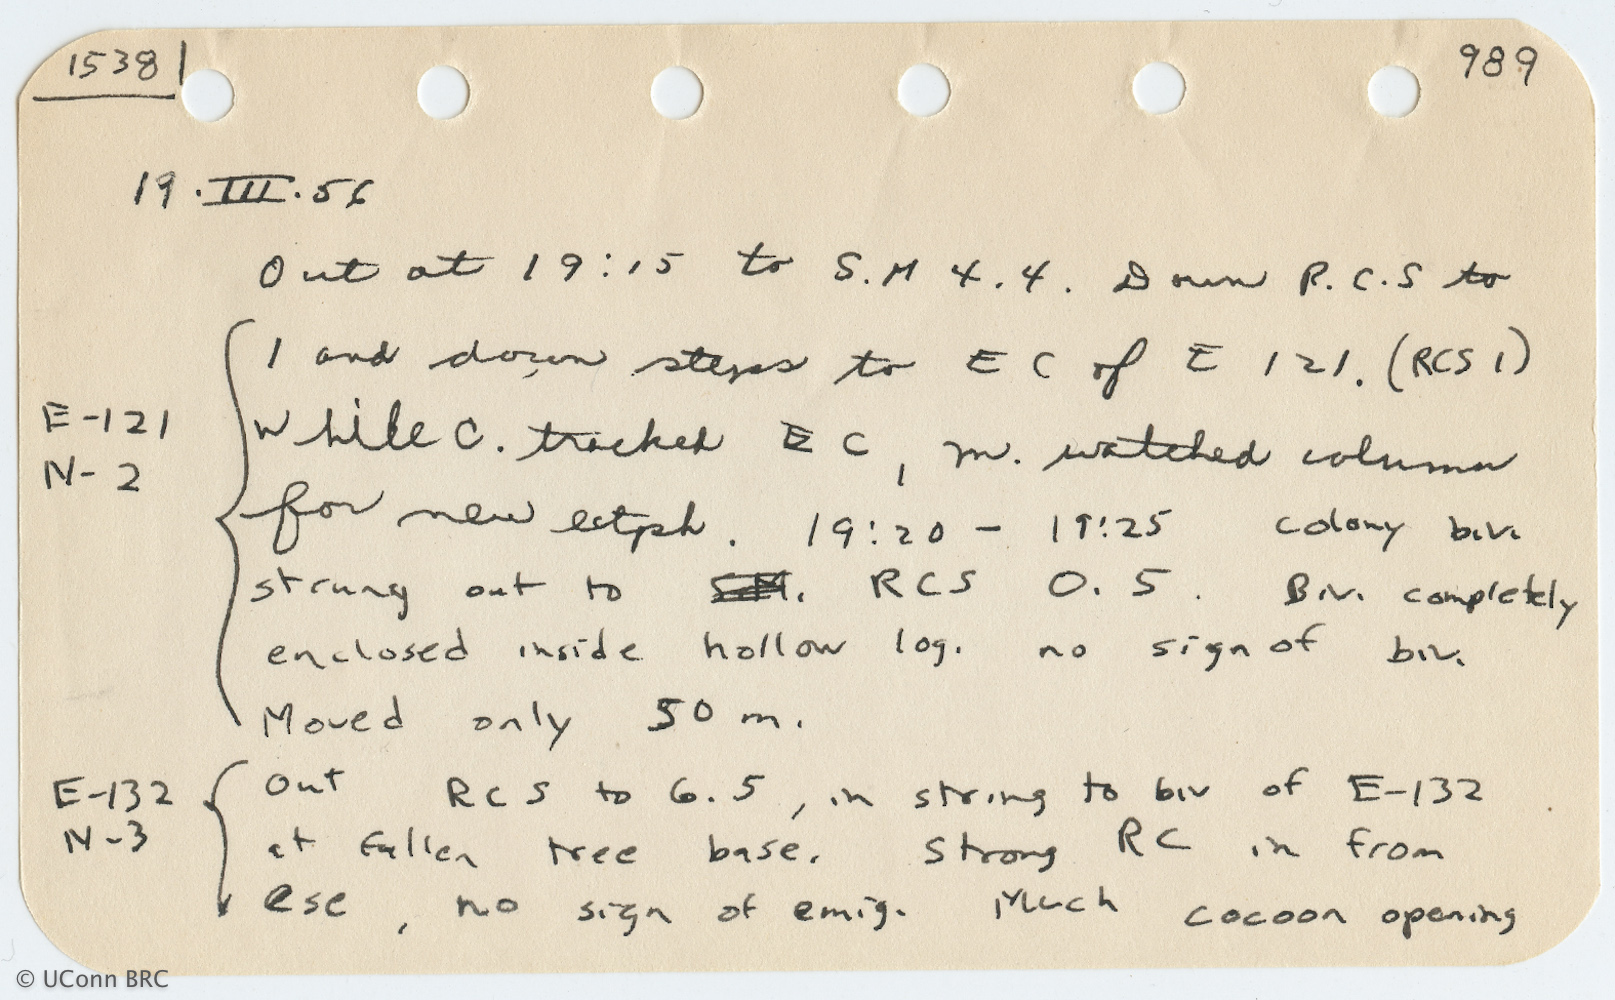 1538
989
19.III.56
Out at 19:15 to S.M 4.4. Down R.C.S to
1 and down steps to EC of E 121. (RCS 1)
E-121
N-2
While C. tracked EC, m. watched column
for new ectph. 19:20 - 19:25 colony biv.
strung out to RCS 0.5. Biv. completely
enclosed inside hollow log. no sign of biv.
Moved only 50 m.
E-132
N-3
Out RCS to 6.5, in string to biv of E-132
at fallen tree base. Strong RC in from
ese, no sign of emig. Much cocoon opening
© UConn BRC